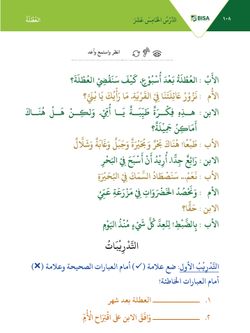 ١٠٨ BISA الدَّرْسُ الْخَامِسَ عَشَرَ العُطْلَةُ
انظر واستمع وأعد
الأَبُ : العُطْلَةُ بَعْدَ أُسْبُوعٍ، كَيْفَ سَنَقْضِي العُطْلَةَ؟
الأُم : نَزُورُ عَائِلَتَنَا فِي القَرْيَةِ، مَا رَأْيُكَ يَا بُنَيَّ؟
الابن : هـذِهِ فِكْرَةٌ طَيِّبَةٌ يَا أُمِّي، وَلكِنْ هَلْ هُنَاكَ
أَمَاكِنُ جَمِيلَةٌ؟
الأَب : طَبْعًا؛ هُنَاكَ نَهْرٌ وَبُحَيْرَةٌ وَجَبَلٌ وَغَابَةٌ وَشَلَّالٌ
الابن : رَائِعٌ جِدًّا، أُرِيدُ أَنْ أَسْبَحَ فِي النَّهْرِ
الأَب : نَعَمْ، سَنَصْطَادُ السَّمَكَ فِي البُحَيْرَةِ
الأُم : وَنَحْصُدُ الخَضْرَوَاتِ فِي مَزْرَعَةِ عَمِّي
الابن : حَقًّا؟
الأَب : بِالضَّبْطِ! لِنُعِدَّ كُلَّ شَيْءٍ مُنْذُ اليَوْمِ
التَّدْرِيبَاتُ
التَّدْرِيبُ الأَوَّلُ: ضع علامة (✓) أمام العبارات الصحيحة وعلامة (✗)
أمام العبارات الخاطئة!
١. العطلة بعد شهر
٢. وَافَقَ الابن عَلَى اقْتِرَاحِ الْأُمِّ